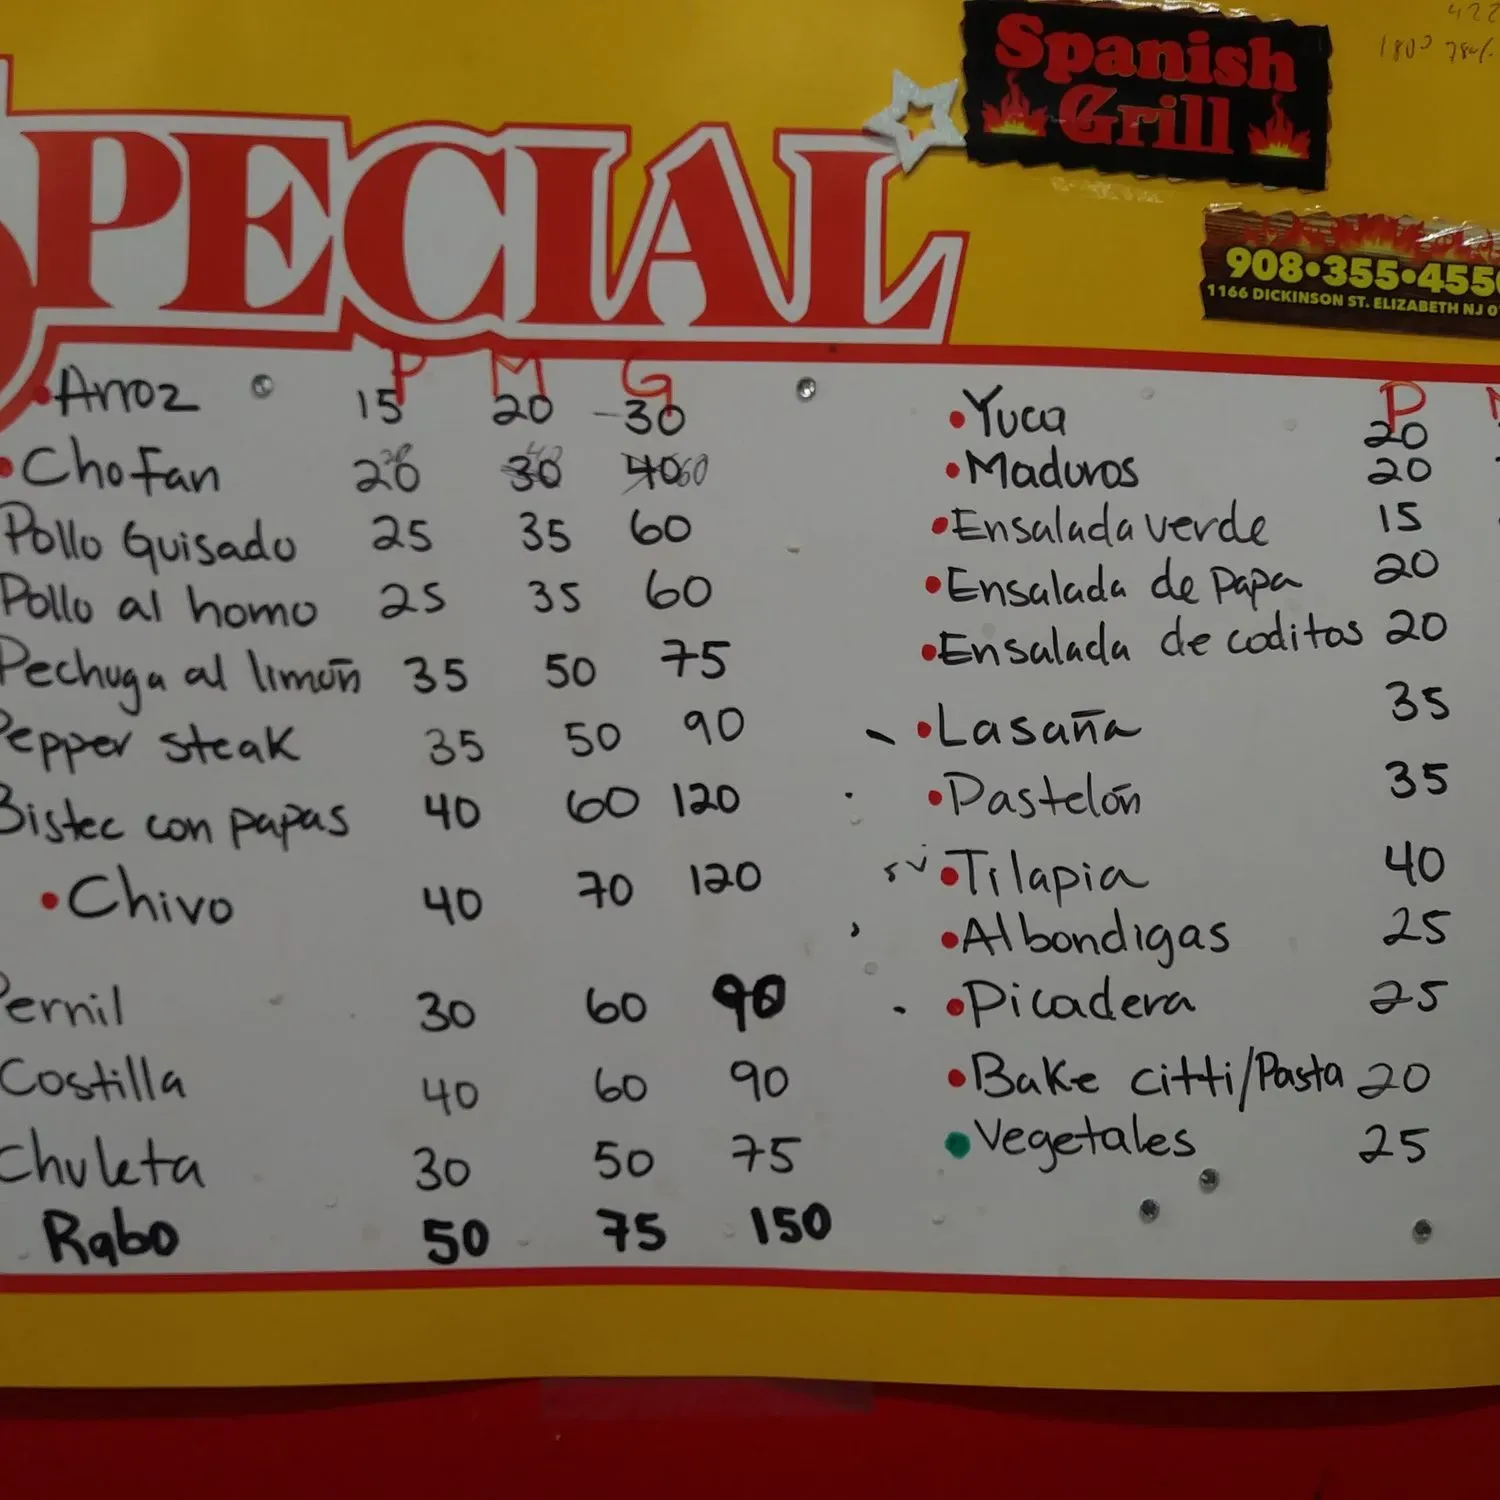 SPECIAL
Spanish
Grill
908•355•455
1166 DICKINSON ST. ELIZABETH NJ 0
P M G
•Arroz 15 20 30
•Chofan 20 30 40 60
Pollo Guisado 25 35 60
Pollo al horno 25 35 60
Pechuga al limón 35 50 75
Pepper steak 35 50 90
Bistec con papas 40 60 120
•Chivo 40 70 120
Pernil 30 60 90
Costilla 40 60 90
Chuleta 30 50 75
Rabo 50 75 150
P
•Yuca 20
•Maduros 20
•Ensalada verde 15
•Ensalada de papa 20
•Ensalada de coditos 20
•Lasaña 35
•Pastelón 35
•Tilapia 40
•Albondigas 25
•Picadera 25
•Bake citti/Pasta 20
•Vegetales 25